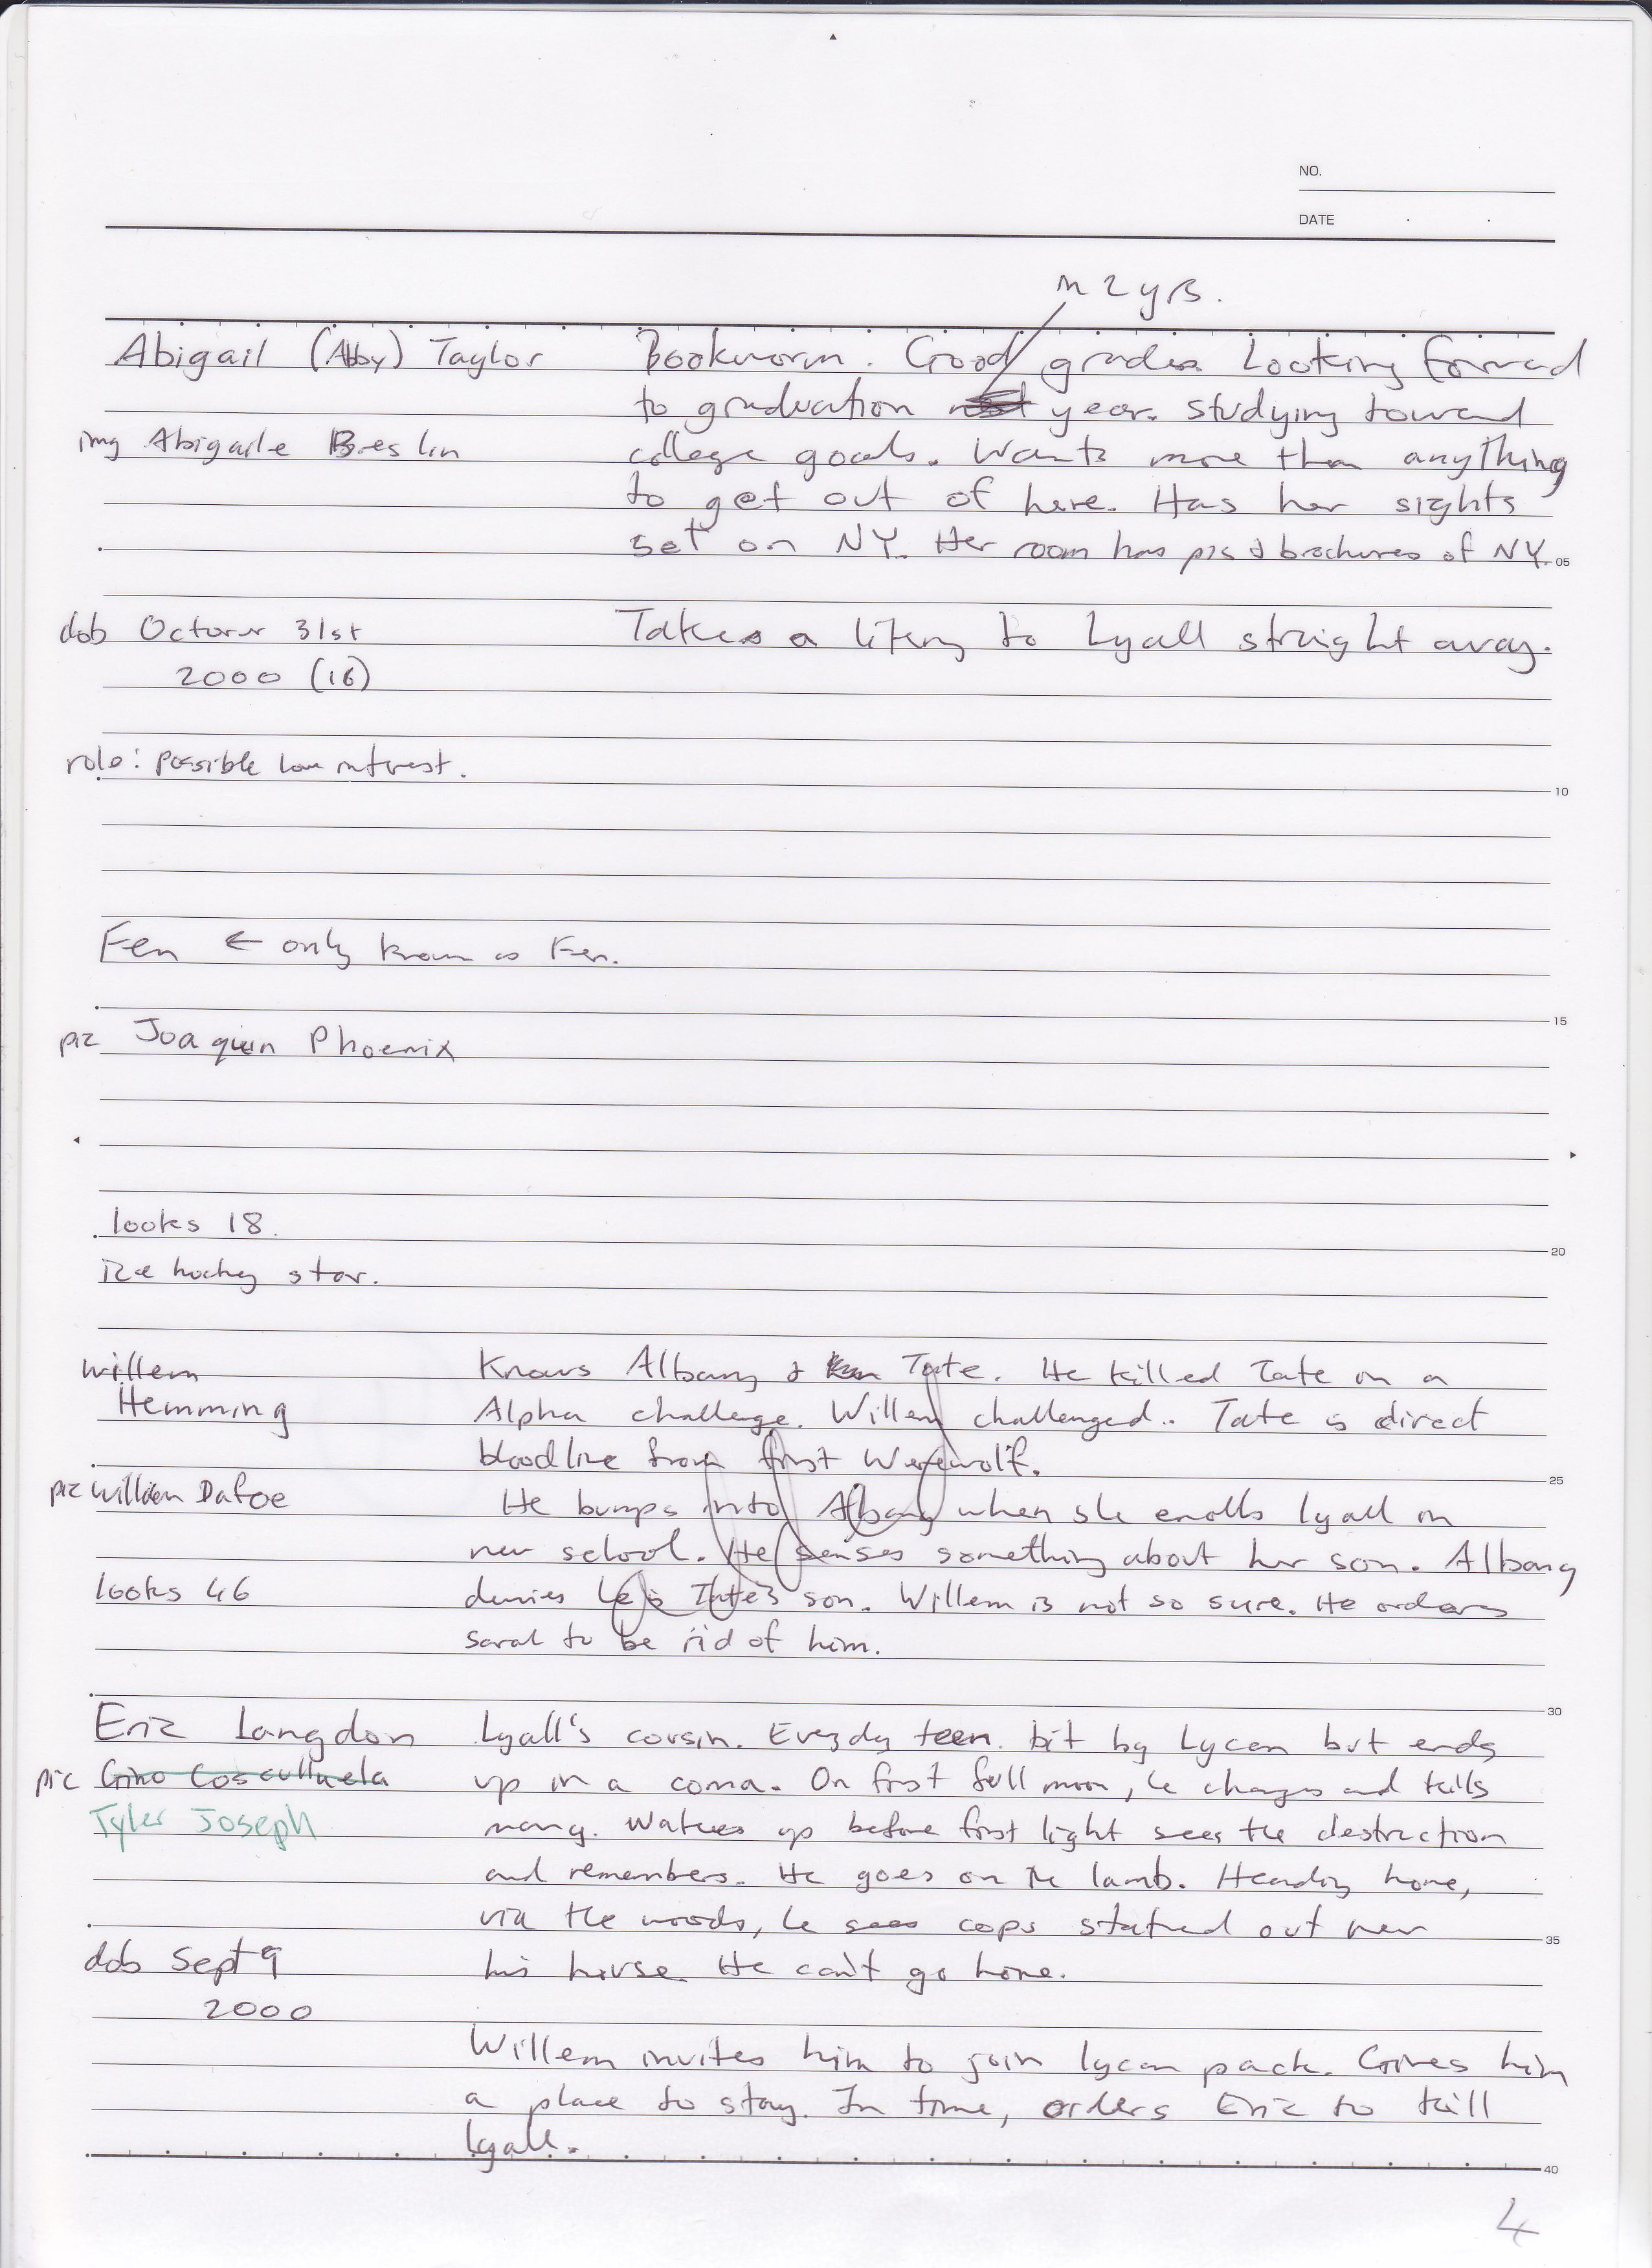 NO.
DATE
in 2 yrs.
Abigail (Abby) Taylor Bookworm. Good grades. Looking forward
to graduation year. Studying toward
img Abigaile Breslin college goals. Wants more than anything
to get out of here. Has her sights
set on NY. Her room has pics & brochures of NY.
05
dob October 31st Takes a liking to Lyall straight away.
2000 (16)
role: possible love interest.
10
Fen ← only known as Fen.
15
pic Joaquin Phoenix
looks 18.
20
ice hockey star.
Willem Knows Albany & Tate. He killed Tate in a
Hemming Alpha challenge. Willem challenged.. Tate is direct
bloodline from first Werewolf.
25
pic Willem Dafoe He bumps into Albany when she enrolls Lyall in
new school. He senses something about her son. Albany
looks 46 denies he is Tate's son. Willem is not so sure. He orders
Sarah to be rid of him.
30
Eric Langdon Lyall's cousin. Everyday teen. bit by Lycan but ends
pic Gino Cosculluela up in a coma. On first full moon, he changes and kills
Tyler Joseph many. Wakes up before first light sees the destruction
and remembers. He goes on the lamb. Heading home,
via the woods, he sees cops staked out near
35
dob Sept 9 his house. He can't go home.
2000
Willem invites him to join lycan pack. Gives him
a place to stay. In time, orders Eric to kill
Lyall.
40
4